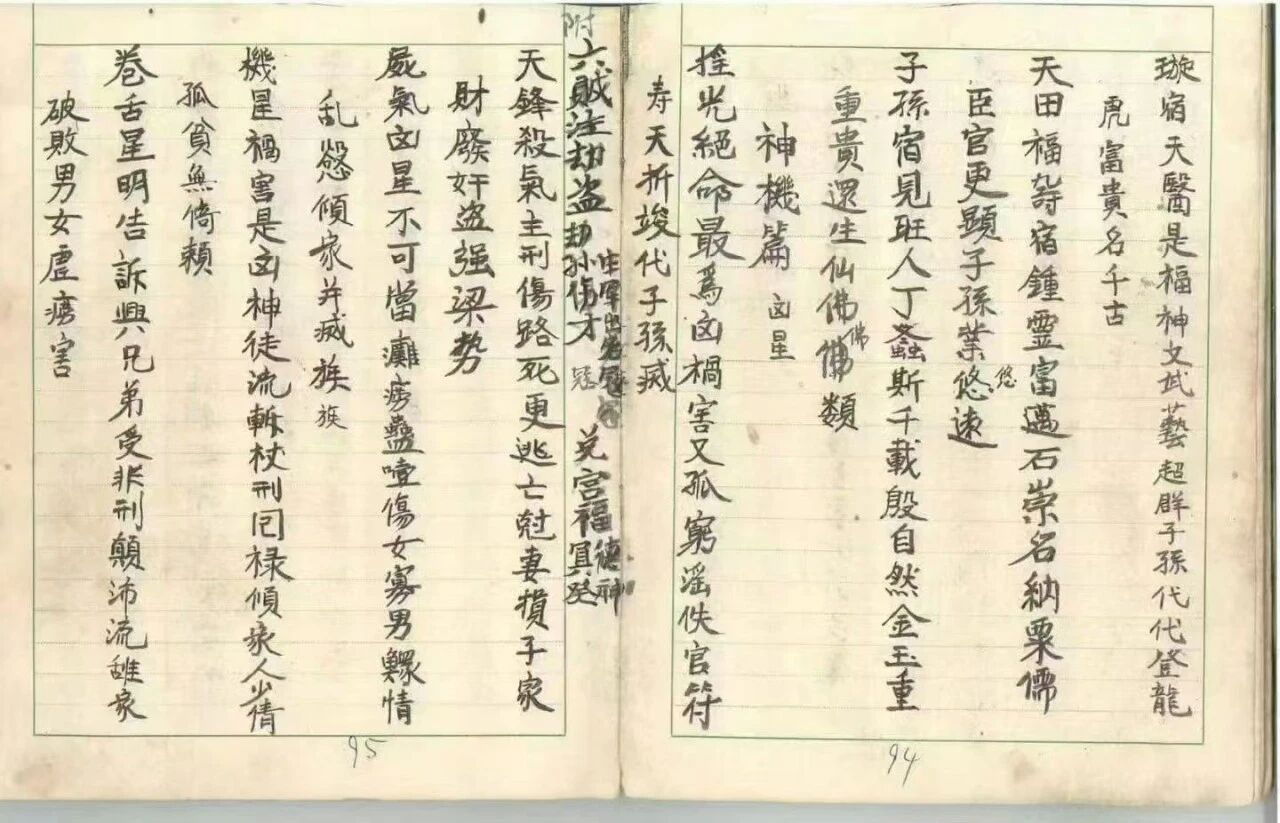 璇宿天醫是福神文武藝超群子孫代代登龍
虎富貴名千古
天田福等宿鍾霊富邁石崇名納栗儒
臣官更顕子孫業悠悠遠
子孫宿見旺人丁螽斯千載殷自然金玉重
重貴還生仙佛佛佛類
神機篇 凶星
光絕命最爲凶禍害又孤窮滛佚官符
寿夭折竣代子孫威
94
附六賊注劫盗劫孙傷才 兑宫福德神
天鋒殺氣主刑傷路死更逃亡尅妻損子家
財廢奸盗强梁勢
屍氣凶星不可當癱痨蠱噎傷女寡男鰥情
乱慾傾家并威族族
機星禍害是凶神徒流斬杖刑囘禄傾家人少情
孤貧無倚賴
巻舌星明告訴興兄弟受非刑顛沛流雝家
破敗男女虚痨害
95